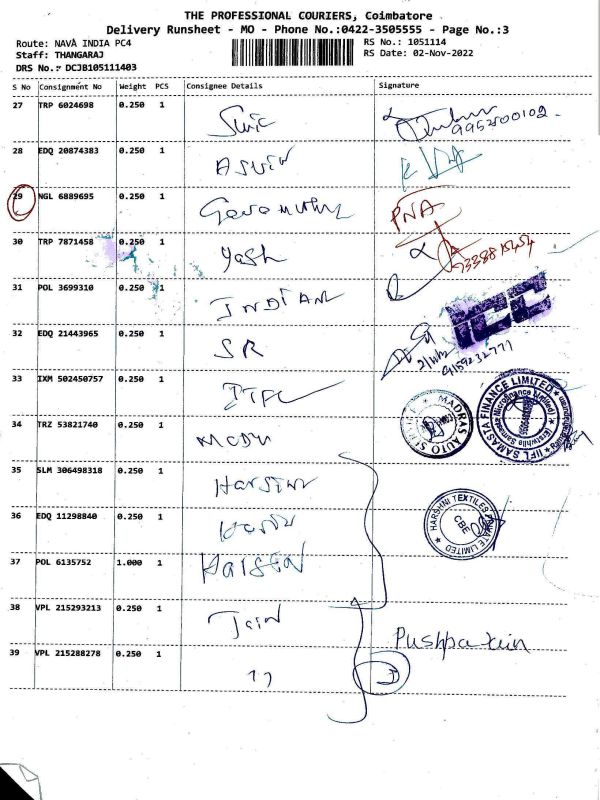 THE PROFESSIONAL COURIERS, Coimbatore
Delivery Runsheet - MO - Phone No.:0422-3505555 - Page No.:3
Route: NAVA INDIA PC4
RS No.: 1051114
Staff: THANGARAJ
RS Date: 02-Nov-2022
DRS No.: DCJB105111403
S No Consignment No Weight PCS Consignee Details Signature
27 TRP 6024698 0.250 1
9952500102
28 EDQ 20874383 0.250 1 ASWIN
29 NGL 6889695 0.250 1 PNA
30 TRP 7871458 0.250 1 Yash
31 POL 3699310 0.250 1 INDIAN
ICC
32 EDQ 21443965 0.250 1 SR
9159232771
33 IXM 502450757 0.250 1
MADRAS AUTO SERVICE
IIFL SAMASTA FINANCE LIMITED
(Erstwhile Samasta Microfinance Limited)
34 TRZ 53821740 0.250 1
35 SLM 306498318 0.250 1
HARSHNI TEXTILES PRIVATE LIMITED
CBE
36 EDQ 11298840 0.250 1
37 POL 6135752 1.000 1
38 VPL 215293213 0.250 1 Jain
Pushpa Jain
39 VPL 215288278 0.250 1 "